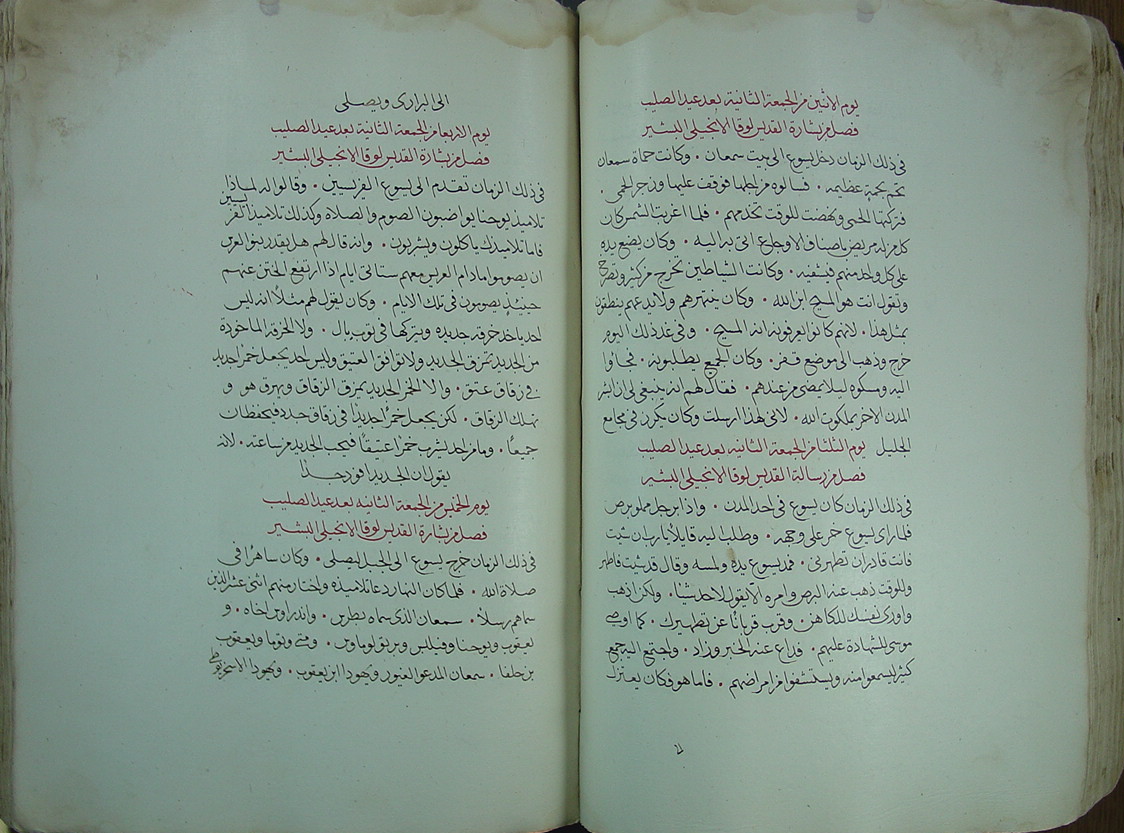 يوم الاثنين من الجمعة الثانية بعد عيد الصليب
فصل من بشارة القديس لوقا الانجيلي البشير
في ذلك الزمان دخل يسوع الى بيت سمعان . وكانت حماة سمعان
تحم بحمى عظيمه . فسالوه من اجلها فوقف عليها وزجر الحمى .
فتركتها الحمى ونهضت للوقت تخدمهم . فلما اغربت الشمس كان
كل من له مريض باصناف الاوجاع اتى به اليه . وكان يضع يده
على كل واحد منهم فيشفيه . وكانت الشياطين تخرج من كثير وتصرخ
وتقول انت هو المسيح ابن الله . وكان ينتهرهم ولا يدعهم ينطقون
بمثل هذا . لانهم كانوا يعرفونه انه المسيح . وفي غد ذلك اليوم
خرج وذهب الى موضع قفر . وكان الجمع يطلبونه . فجاوا
اليه ومسكوه ليلا يمضي من عندهم . فقال لهم انه ينبغي لي ان ابشر
المدن الاخر بملكوت الله . لاني لهذا ارسلت وكان يكرز في مجامع
الجليل يوم الثلثا من الجمعة الثانيه بعد عيد الصليب
فصل من رسالة القديس لوقا الانجيلي البشير
في ذلك الزمان كان يسوع في احد المدن . واذا برجل مملو برص
فلما راى يسوع خر على وجهه . وطلب اليه قايلا يا رب ان شيت
فانت قادر ان تطهرني . فمد يسوع يده ولمسه وقال قد شيت فاطهر
وللوقت ذهب عنه البرص وامره الا يقول لاحد شيا . ولكن اذهب
واوري نفسك للكاهن . وقرب قربانا عن تطهيرك . كما اوصى
موسى للشهادة عليهم . فذاع عنه الخبر وزاد . واجتمع اليه جمع
كثير ليسمعوا منه ويستشفوا من امراضهم . فاما هو فكان يعتزل
الى البراري ويصلي
يوم الاربعا من الجمعة الثانية بعد عيد الصليب
فصل من بشارة القديس لوقا الانجيلي البشير
في ذلك الزمان تقدم الى يسوع الفريسين . وقالوا له لماذا
تلاميذ يوحنا يواضبون الصوم والصلاة وكذلك تلاميذ الفريسين
فاما تلاميذك ياكلون ويشربون . وانه قال لهم هل يقدر بنو العرس
ان يصوموا ما دام العريس معهم ستاتي ايام اذا ارتفع الختن عنهم
حينيذ يصومون في تلك الايام . وكان يقول لهم مثلا انه ليس
احد ياخذ خرقه جديده ويتركها في ثوب بال . ولا الخرقه الماخوذة
من الجديد تمزق الجديد ولا توافق العتيق وليس احد يجعل خمرا جديد
في زقاق عتق . والا الخمر الجديد يمزق الزقاق ويهرق هو و
تهلك الزقاق . لكن يجعل خمرا جديدا في زقاق جدد فيحفظان
جميعا . وما من احد يشرب خمرا عتيقا فيحب الجديد من ساعته . لانه
يقول ان الجديد اقود جدا
يوم الخميس من الجمعة الثانيه بعد عيد الصليب
فصل من بشارة القديس لوقا الانجيلي البشير
في ذلك الزمان خرج يسوع الى الجبل ليصلي . وكان ساهرا في
صلاة الله . فلما كان النهار دعا تلاميذه واختار منهم اثني عشر الذين
سماهم رسلا . سمعان الذي سماه بطرس . واندراوس اخاه . و
يعقوب ويوحنا وفيلبس وبرتولوماوس . ومتى وتوما ويعقوب
بن حلفا . سمعان المدعو الغيور ويهودا ابن يعقوب . ويهودا الاسخريوطي